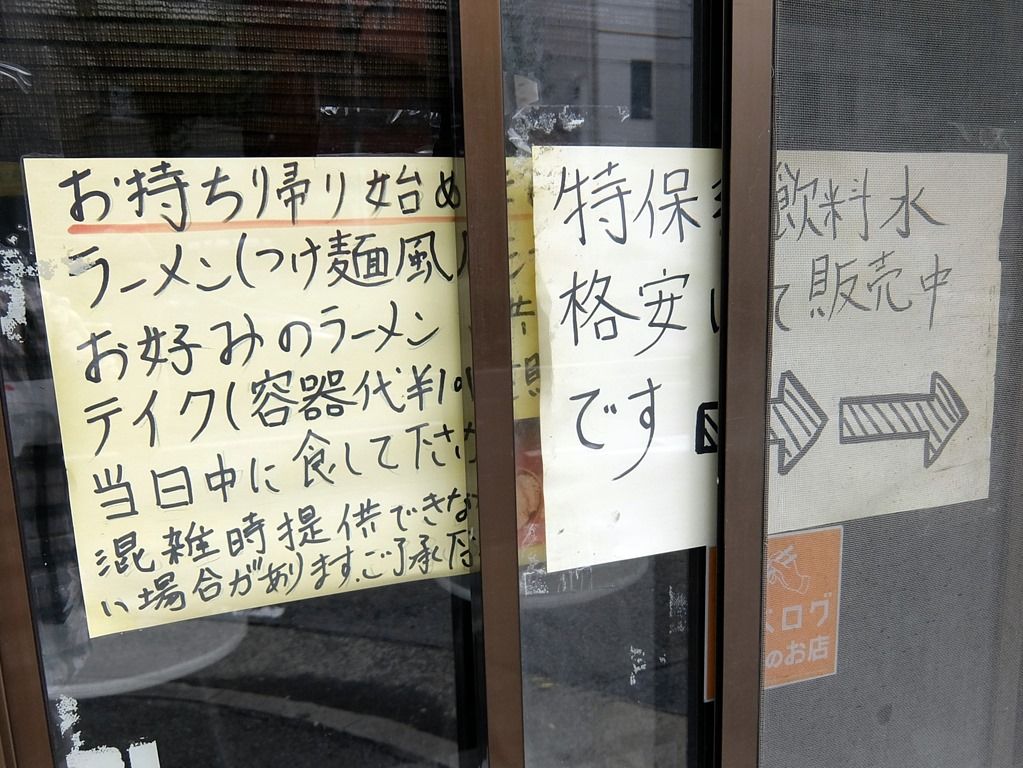 お持ち帰り始め
ラーメン(つけ麺風)
お好みのラーメン
テイク(容器代¥10
当日中に食して下さ
混雑時提供できな
い場合があります。ご了承下さ
特保
格安
です
飲料水
て販売中
ログ
のお店